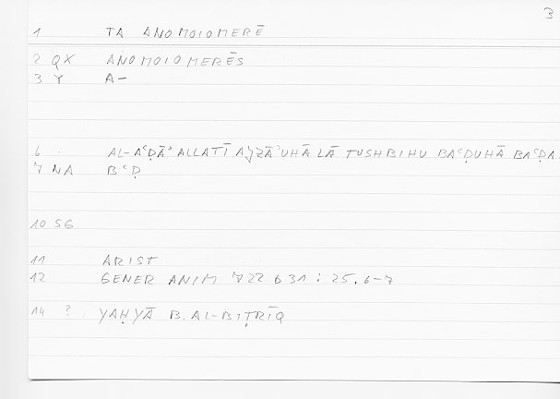 3
1 TA ANOMOIOMERĒ
2 QX ANOMOIOMERĒS
3 Y A-
6 AL-AʿḌĀʾ ALLATĪ AJZĀʾUHĀ LĀ TUSHBIHU BAʿḌUHĀ BAʿḌA
7 NA BʿḌ
10 SG
11 ARIST
12 GENER ANIM 722 b31 : 25.6-7
14 ? YAḤYĀ B. AL-BIṬRĪQ